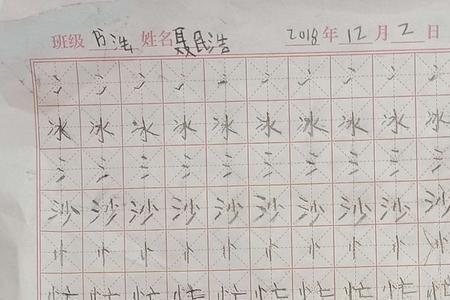 班级 姓名 民浩 2018年12月2日
冫 冫 冫 冫 冫 冫 冫 冫 冫 冫
冰 冰 冰 冰 冰 冰 冰 冰 冰 冰
氵 氵 氵 氵 氵 氵 氵 氵 氵 氵
沙 沙 沙 沙 沙 沙 沙 沙 沙 沙
忄 忄 忄 忄 忄 忄 忄 忄 忄 忄
忙 忙 忙 忙 忙 忙 忙 忙 忙 忙